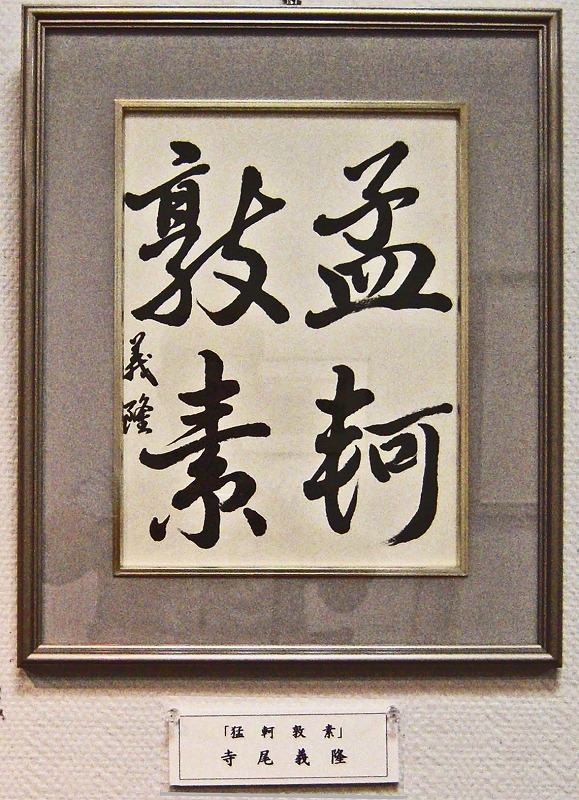 孟軻
敦素
義隆
「猛軻敦素」
寺尾義隆